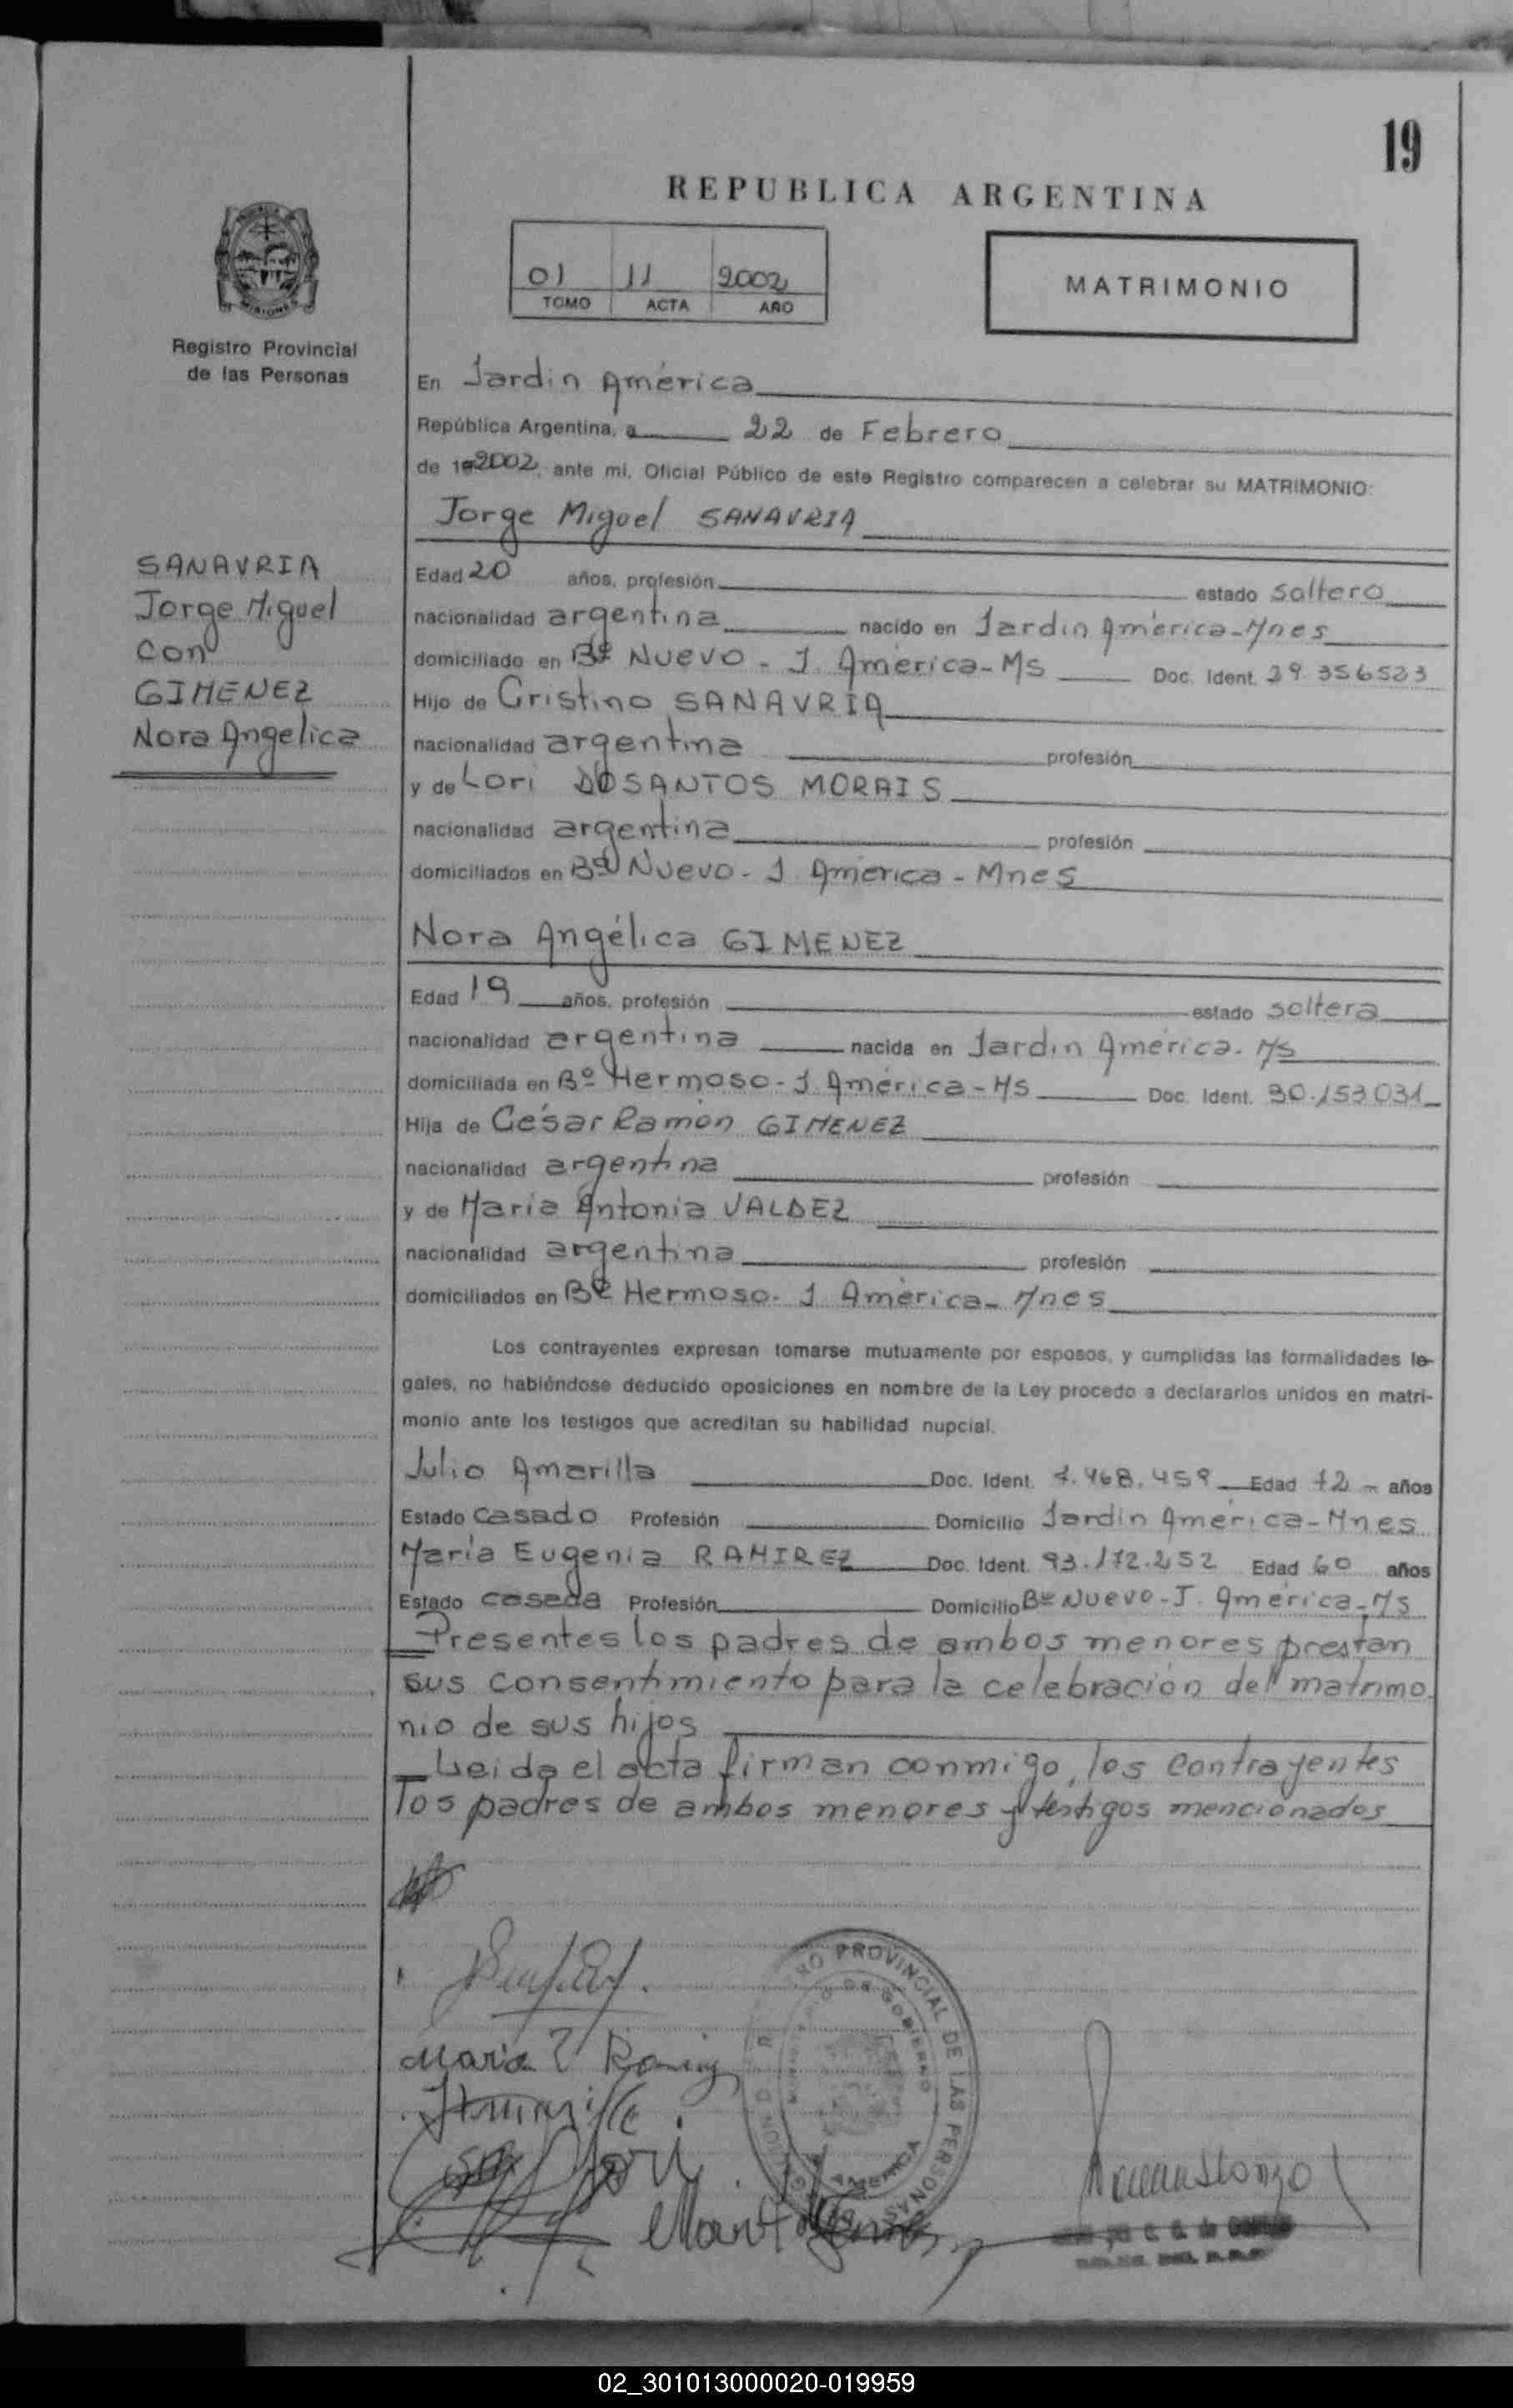 19
REPUBLICA ARGENTINA
01 11 2002
TOMO ACTA AÑO
MATRIMONIO
MISIONES
Registro Provincial
de las Personas
En Jardin América
República Argentina, a 22 de Febrero
de 192002, ante mi, Oficial Público de este Registro comparecen a celebrar su MATRIMONIO:
Jorge Miguel SANAVRIA
SANAVRIA
Jorge Miguel
Con
GIMENEZ
Nora Angelica
Edad 20 años, profesión estado soltero
nacionalidad argentina nacido en Jardin América-Mnes
domiciliado en Bº Nuevo - J. América-Ms Doc. Ident. 29.356523
Hijo de Cristino SANAVRIA
nacionalidad argentina profesión
y de Lori DOSANTOS MORAIS
nacionalidad argentina profesión
domiciliados en Bº Nuevo - J. América - Mnes
Nora Angélica GIMENEZ
Edad 19 años, profesión estado soltera
nacionalidad argentina nacida en Jardin América. Ms
domiciliada en Bº Hermoso - J. América-Ms Doc. Ident. 30.153031
Hija de César Ramón GIMENEZ
nacionalidad argentina profesión
y de María Antonia VALDEZ
nacionalidad argentina profesión
domiciliados en Bº Hermoso - J. América - Mnes
Los contrayentes expresan tomarse mutuamente por esposos, y cumplidas las formalidades le-
gales, no habiéndose deducido oposiciones en nombre de la Ley procedo a declararlos unidos en matri-
monio ante los testigos que acreditan su habilidad nupcial.
Julio Amarilla Doc. Ident. 7.468.459 Edad 72 años
Estado Casado Profesión Domicilio Jardin América-Mnes
María Eugenia RAMIREZ Doc. Ident. 93.172.252 Edad 60 años
Estado casada Profesión Domicilio Bº Nuevo - J. América-Ms
Presentes los padres de ambos menores prestan
sus consentimiento para la celebración del matrimo
nio de sus hijos
Leida el acta firman conmigo, los contrayentes
los padres de ambos menores y testigos mencionados
PROVINCIAL DE LAS PERSONAS
GOBIERNO
AMERICA
Maria E Ramirez
Lori
02_301013000020-019959